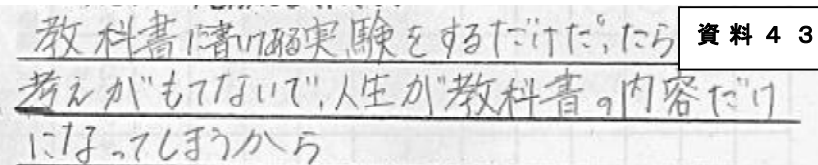 教科書に書いてある実験をするだけだったら
資料43
考えがもてないで、人生が教科書の内容だけ
になってしまうから